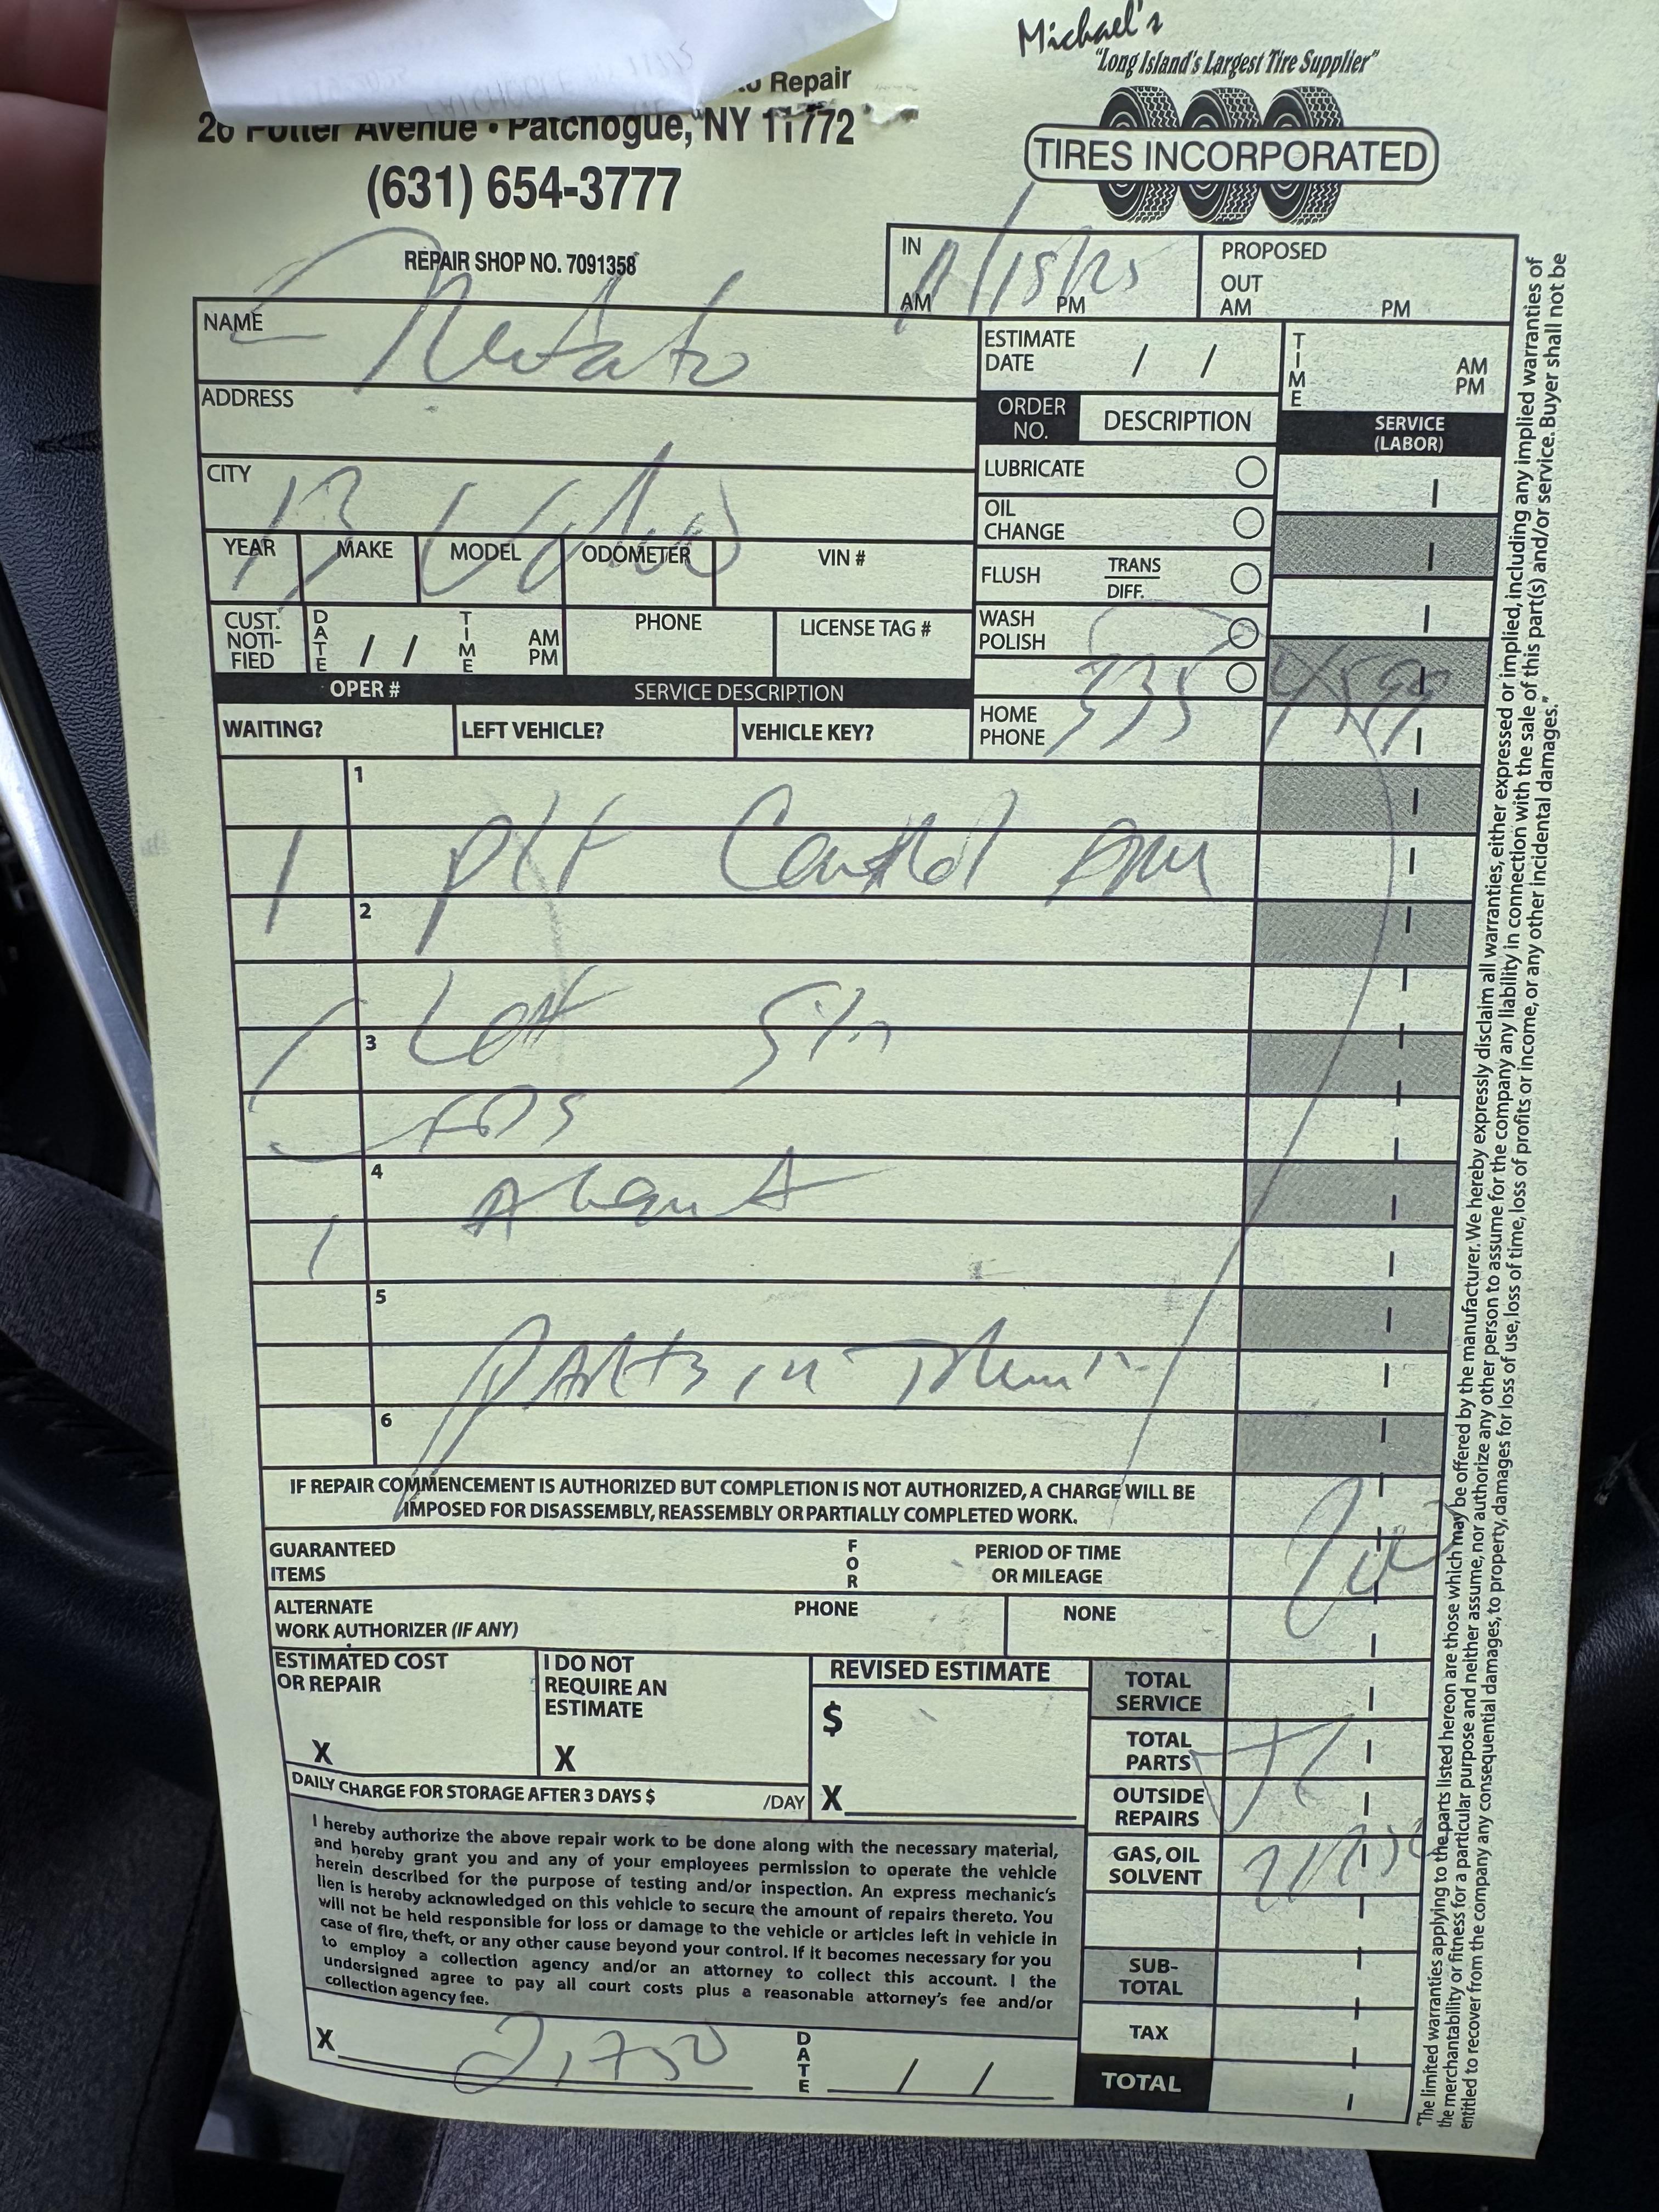 Michael's
"Long Island's Largest Tire Supplier"
Repair
26 Potter Avenue • Patchogue, NY 11772
(631) 654-3777
TIRES INCORPORATED
REPAIR SHOP NO. 7091358
IN
AM PM
PROPOSED
OUT
AM PM
NAME
ESTIMATE
DATE / /
TIME
AM
PM
ADDRESS
ORDER
NO.
DESCRIPTION
SERVICE
(LABOR)
CITY
13
LUBRICATE
OIL
CHANGE
YEAR MAKE MODEL ODOMETER VIN #
FLUSH TRANS
DIFF.
CUST.
NOTI-
FIED
DATE / /
TIME
AM
PM
PHONE
LICENSE TAG #
WASH
POLISH
OPER # SERVICE DESCRIPTION
335
WAITING? LEFT VEHICLE? VEHICLE KEY?
HOME
PHONE
1
1 Control Arm
2
3
4
1
5
Parts in
6
IF REPAIR COMMENCEMENT IS AUTHORIZED BUT COMPLETION IS NOT AUTHORIZED, A CHARGE WILL BE
IMPOSED FOR DISASSEMBLY, REASSEMBLY OR PARTIALLY COMPLETED WORK.
GUARANTEED
ITEMS
FOR
PERIOD OF TIME
OR MILEAGE
ALTERNATE
WORK AUTHORIZER (IF ANY)
PHONE
NONE
ESTIMATED COST
OR REPAIR
X
I DO NOT
REQUIRE AN
ESTIMATE
X
REVISED ESTIMATE
$
X
TOTAL
SERVICE
TOTAL
PARTS
OUTSIDE
REPAIRS
GAS, OIL
SOLVENT
SUB-
TOTAL
TAX
TOTAL
DAILY CHARGE FOR STORAGE AFTER 3 DAYS $ /DAY
I hereby authorize the above repair work to be done along with the necessary material,
and hereby grant you and any of your employees permission to operate the vehicle
herein described for the purpose of testing and/or inspection. An express mechanic's
lien is hereby acknowledged on this vehicle to secure the amount of repairs thereto. You
will not be held responsible for loss or damage to the vehicle or articles left in vehicle in
case of fire, theft, or any other cause beyond your control. If it becomes necessary for you
to employ a collection agency and/or an attorney to collect this account. I the
undersigned agree to pay all court costs plus a reasonable attorney's fee and/or
collection agency fee.
X 2,750
DATE / /
"The limited warranties applying to the parts listed hereon are those which may be offered by the manufacturer. We hereby expressly disclaim all warranties, either expressed or implied, including any implied warranties of
the merchantability or fitness for a particular purpose and neither assume, nor authorize any other person to assume for the company any liability in connection with the sale of this part(s) and/or service. Buyer shall not be
entitled to recover from the company any consequential damages, to property, damages for loss of use, loss of time, loss of profits or income, or any other incidental damages."